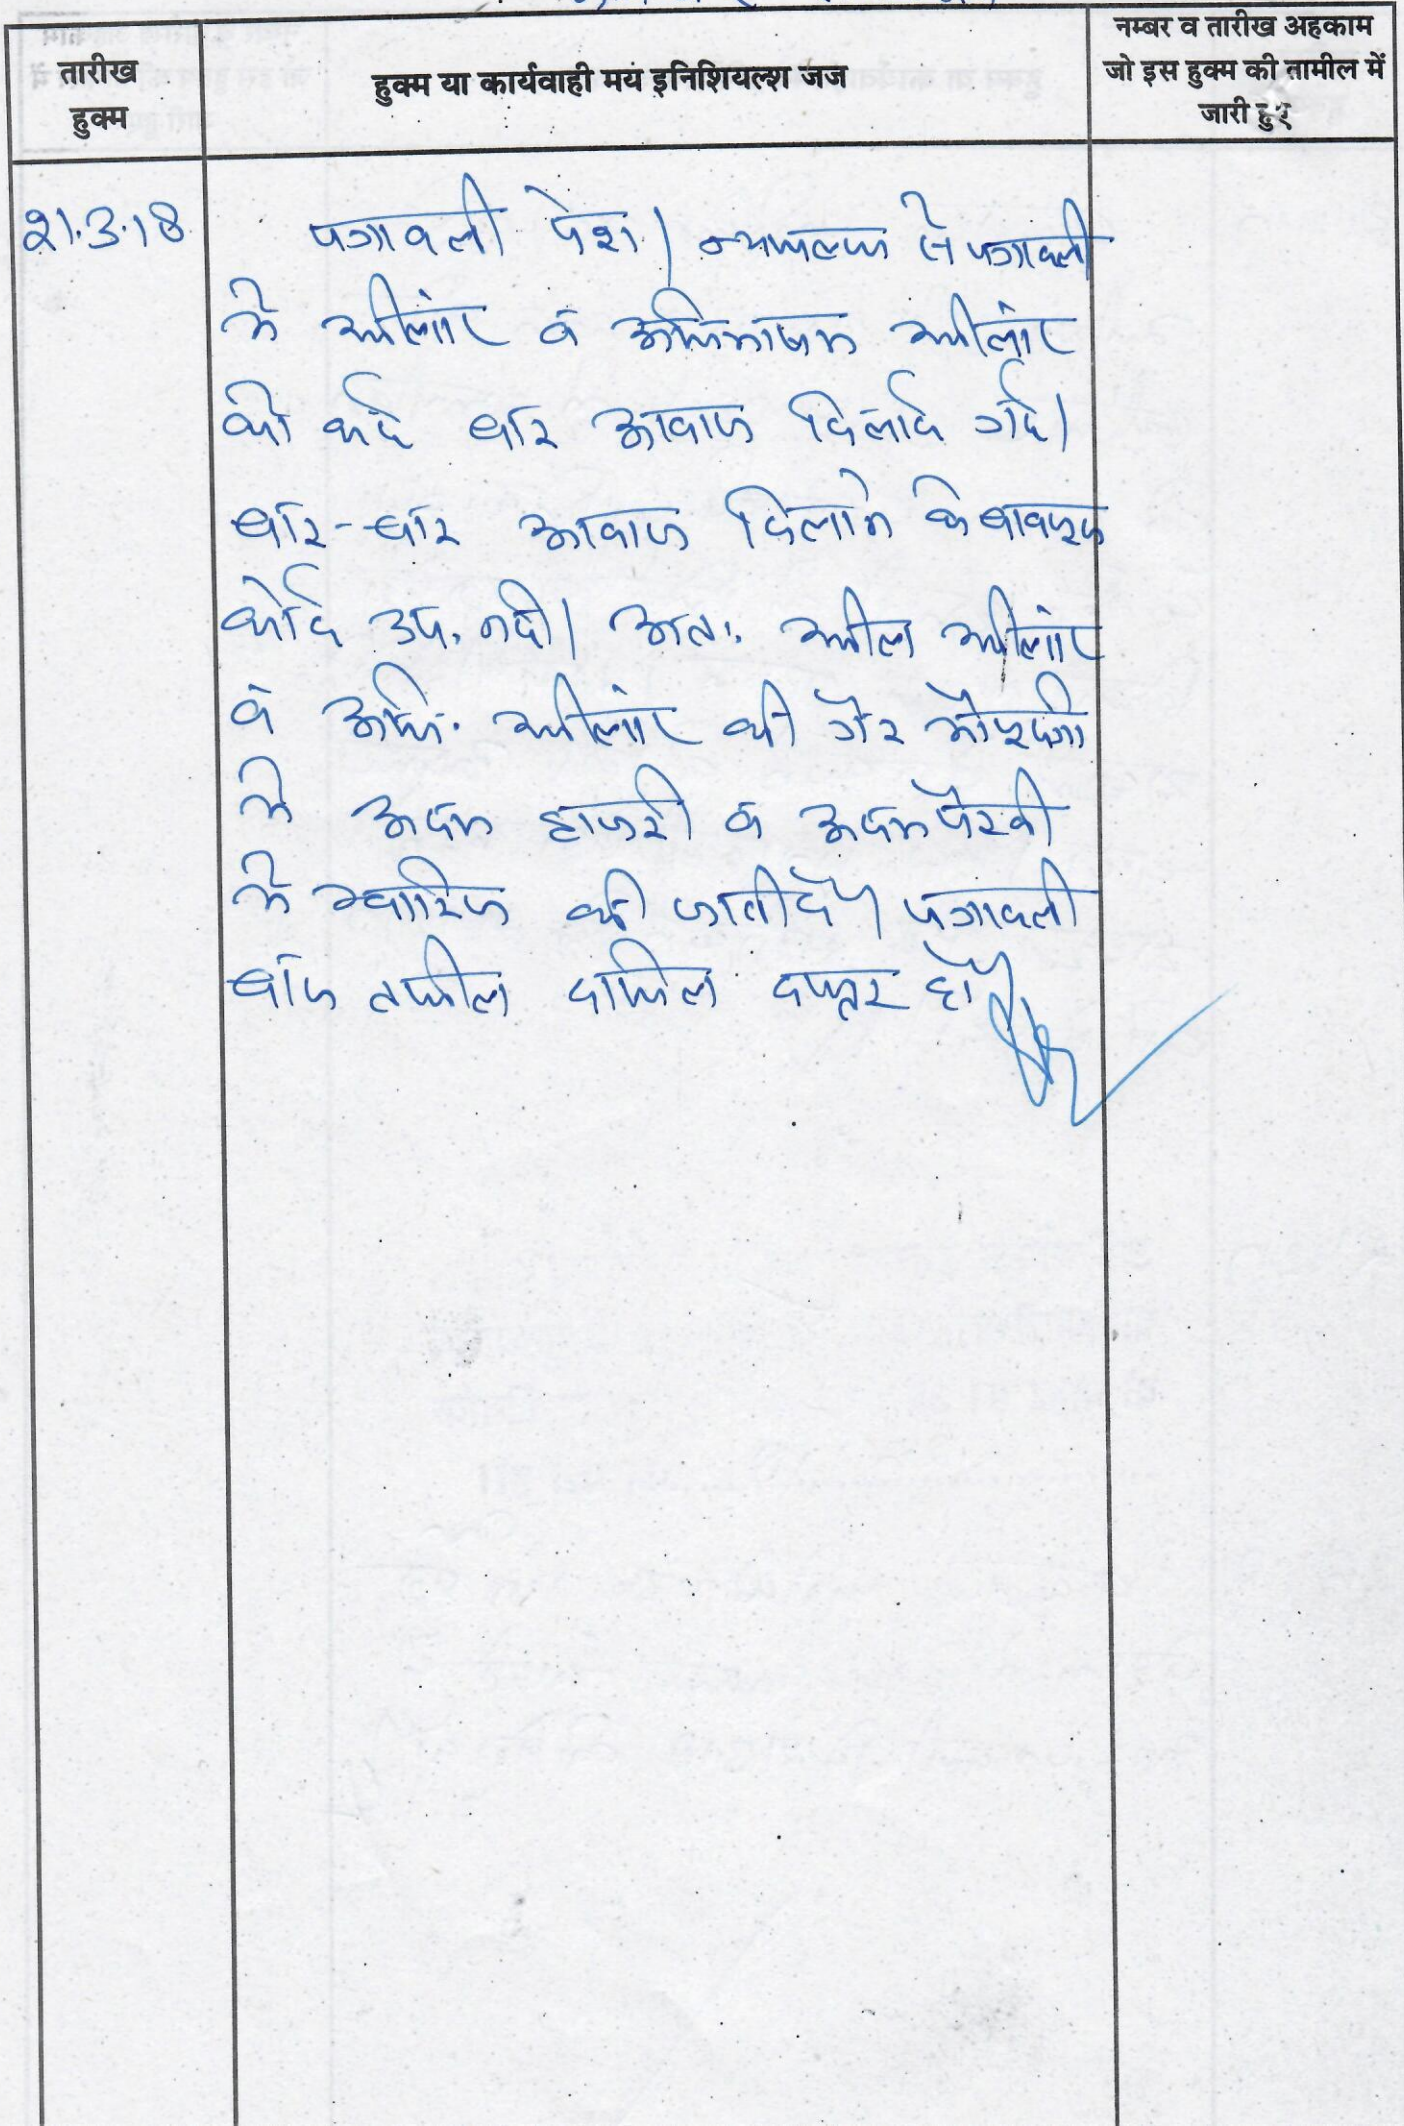 तारीख
हुक्म
हुक्म या कार्यवाही मय इनिशियल्श जज
नम्बर व तारीख अहकाम
जो इस हुक्म की तामील में
जारी हुए
21.3.18
पत्रावली पेश। न्यायालय से पत्रावली
में अपीलांट व अभिभाषक अपीलांट
को कई बार आवाज दिलाई गई।
बार-बार आवाज दिलाने के बावजूद
कोई उप. नही। अतः अपील अपीलांट
व अभि. अपीलांट की गैर मौजूदगी
में अदम हाजरी व अदम पैरवी
में खारिज की जाती है। पत्रावली
बाद तकमील दाखिल दफ्तर हो।